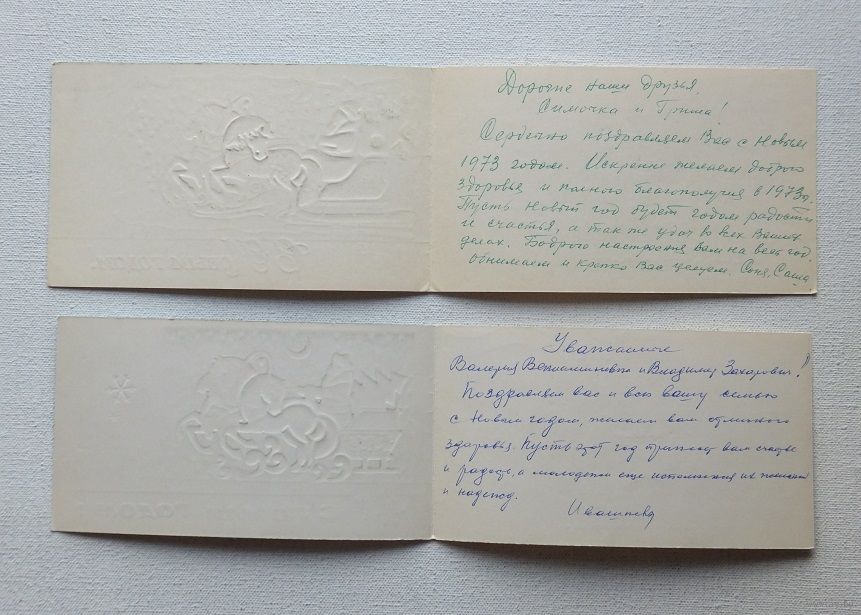 Дорогие наши друзья,
Симочка и Гриша!
Сердечно поздравляем Вас с Новым
1973 годом. Искренне желаем доброго
здоровья и полного благополучия в 1973 г.
Пусть Новый год будет годом радости
и счастья, а так же удач во всех Ваших
делах. Бодрого настроения вам на весь год.
Обнимаем и крепко Вас целуем. Соня, Саша
Уважаемые
Валерия Вениаминовна и Владимир Захарович!
Поздравляем вас и всю вашу семью
с Новым годом, желаем вам отличного
здоровья. Пусть этот год принесет вам счастье
и радость, а молодежи еще исполнения их желаний
и надежд.